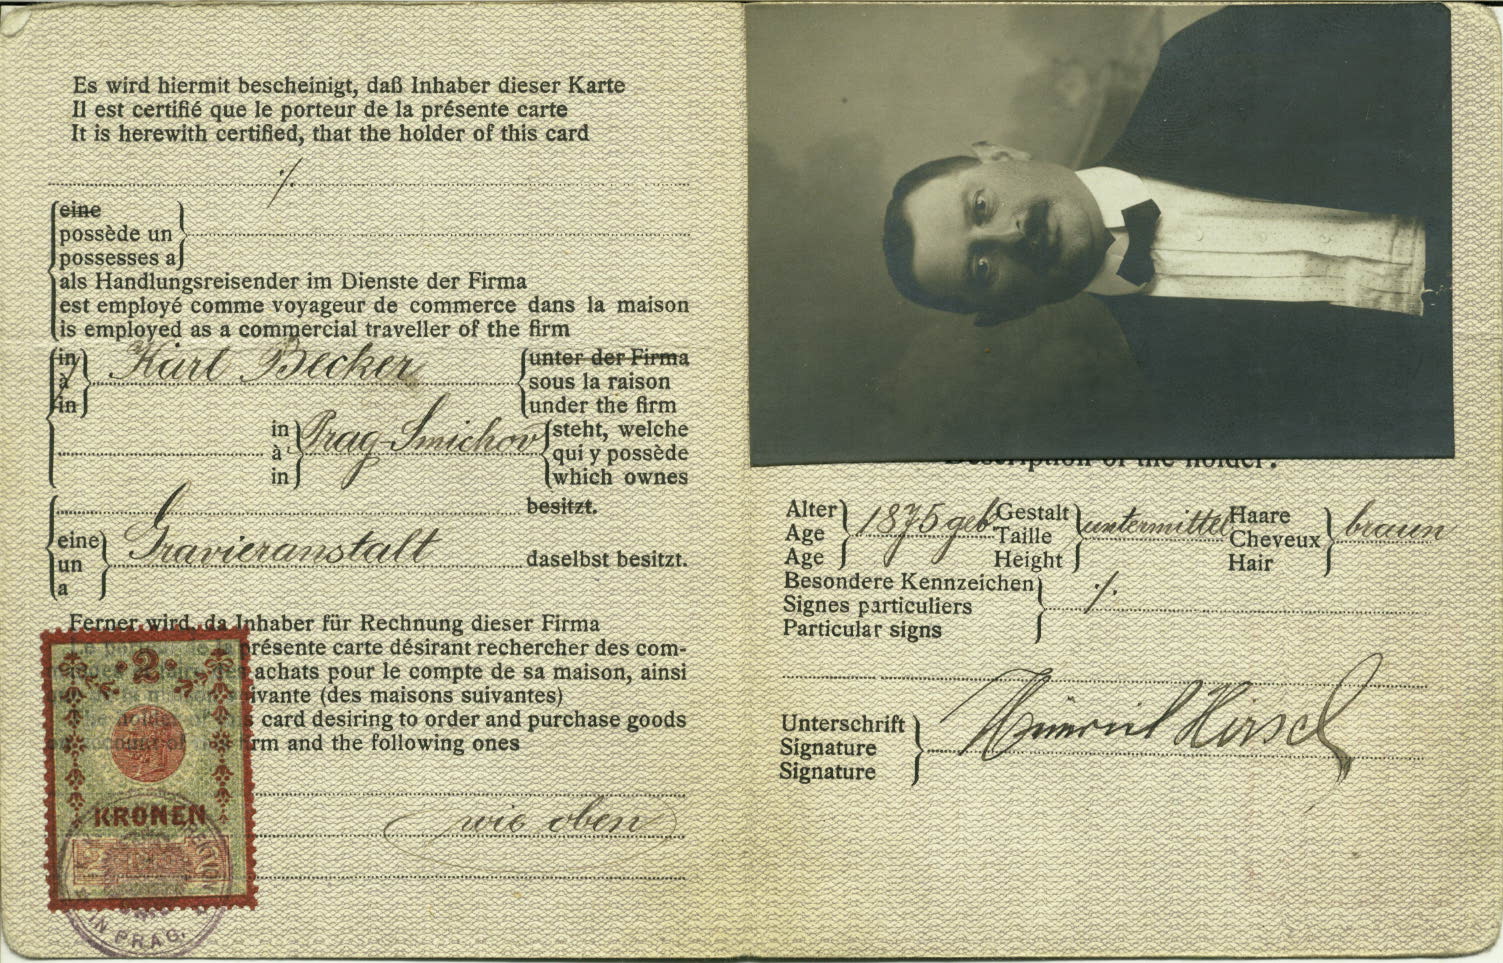 Es wird hiermit bescheinigt, daß Inhaber dieser Karte
Il est certifié que le porteur de la présente carte
It is herewith certified, that the holder of this card
eine
possède un
possesses a
als Handlungsreisender im Dienste der Firma
est employé comme voyageur de commerce dans la maison
is employed as a commercial traveller of the firm
in
à
in
Karl Becker
unter der Firma
sous la raison
under the firm
in
à
in
Prag-Smichov
steht, welche
qui y possède
which ownes
besitzt.
eine
un
a
Gravieranstalt
daselbst besitzt.
Ferner wird, da Inhaber für Rechnung dieser Firma
présente carte désirant rechercher des com-
achats pour le compte de sa maison, ainsi
suivante (des maisons suivantes)
card desiring to order and purchase goods
firm and the following ones
wie oben
2
KRONEN
IN PRAG.
Description of the holder:
Alter
Age
Age
1875 geb.
Gestalt
Taille
Height
untermittel
Haare
Cheveux
Hair
braun
Besondere Kennzeichen
Signes particuliers
Particular signs
Unterschrift
Signature
Signature
Heinrich Hirsch